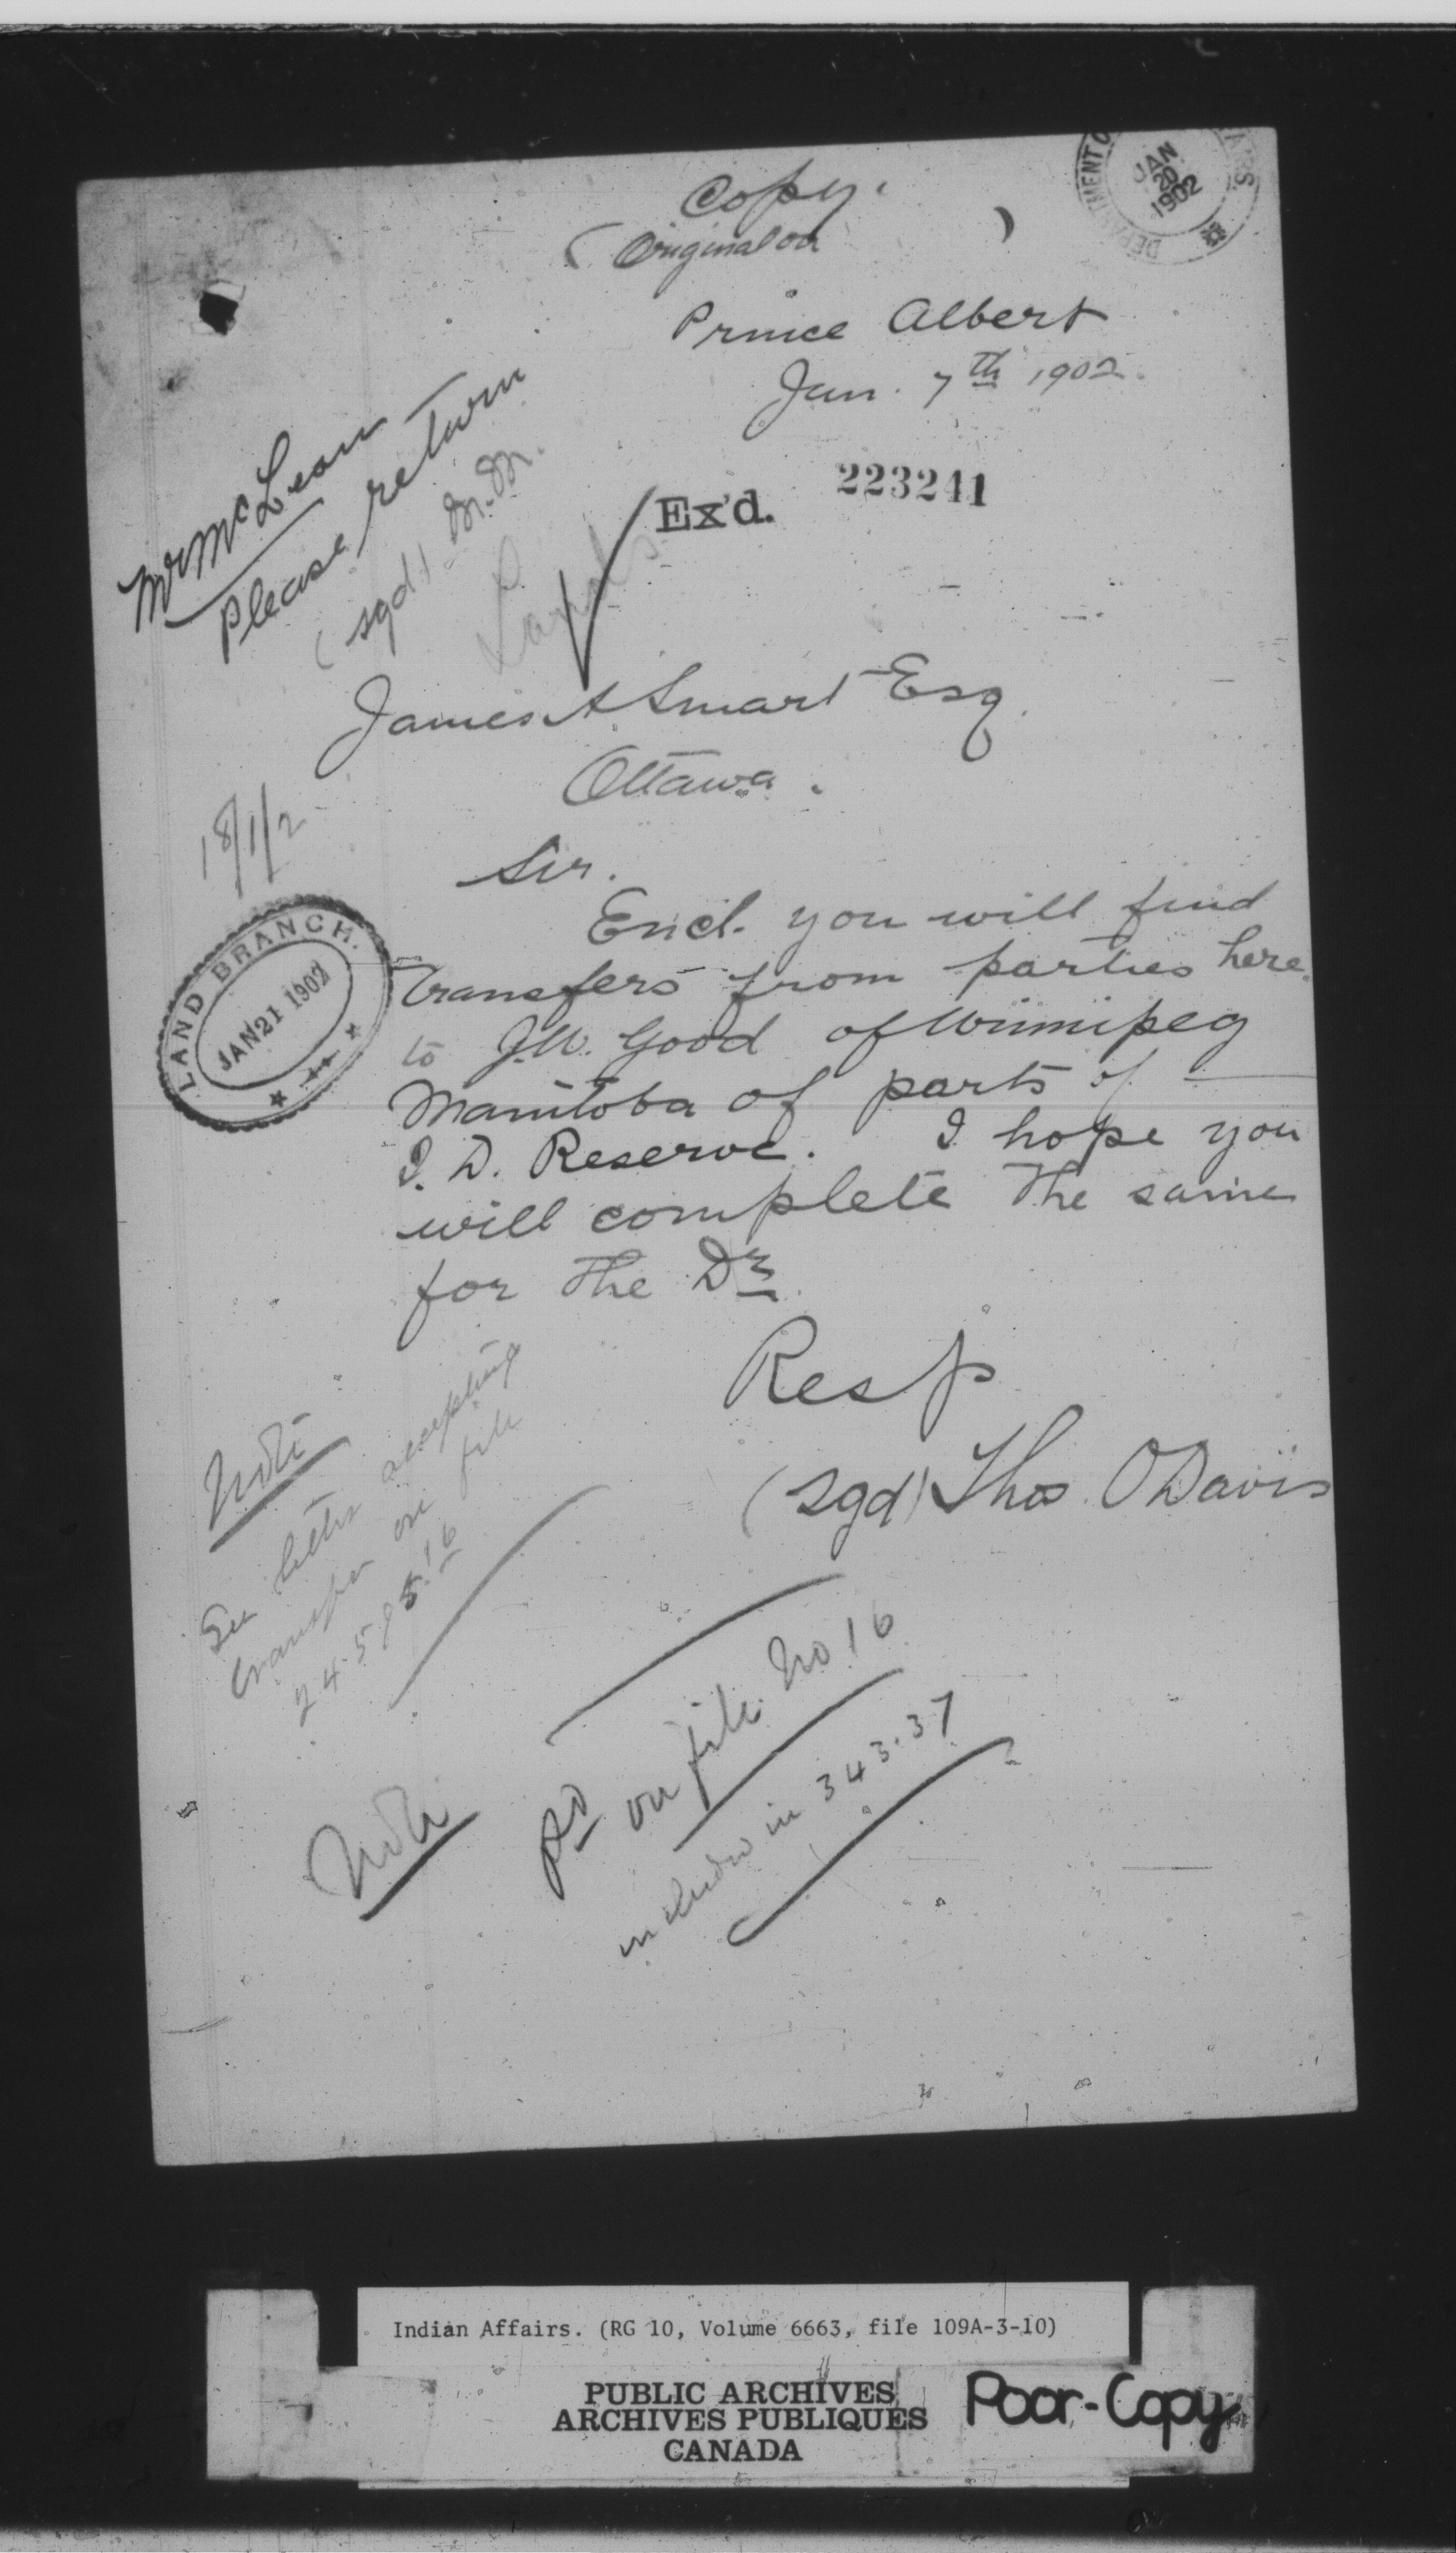 Copy.
(Original on )
DEPARTMENT O
JAN 20 1902
Prince Albert
Jan. 7th 1902.
Mr McLean
Please return
(sgd)
Ex'd. 223241
James A Smart Esq.
Ottawa.
18/1/2
Sir.
Encl. you will find
transfers from parties here
to J.W. Good of Winnipeg
Manitoba of parts of
I. D. Reserve. I hope you
will complete the same
for the Dr.
LAND BRANCH.
JAN 21 1902
Resp
(sgd) Thos O Davis
Note
See letter accepting
transfer on file
Note
pd on file No 16
included in 343.37
Indian Affairs. (RG 10, Volume 6663, file 109A-3-10)
PUBLIC ARCHIVES
ARCHIVES PUBLIQUES
CANADA
Poor-Copy